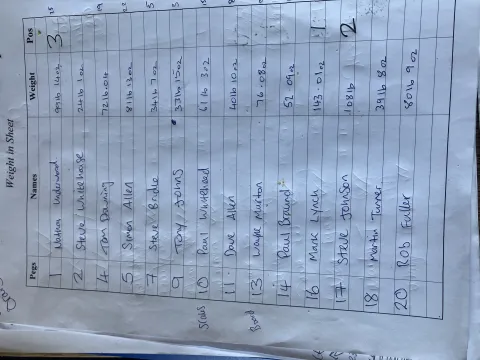 Weight in Sheet
Pegs Names Weight Pos
1 Nathan Underwood 99lb 14oz 3
2 Steve Whitehouse 24lb 1oz
4 Tom Downing 72lb 0oz
5 Simon Allen 81lb 13oz
7 Steve Bridle 34lb 7oz
9 Tony Johns 33lb 15oz
10 Paul Whitehead 61lb 3oz
11 Dave Allen 40lb 10oz
13 Wayne Murton 76.08oz
14 Paul Bound 52.09oz
16 Mark Lynch 143.01oz 1
17 Steve Johnson 108lb 2
18 Martin Turner 39lb 8oz
20 Rob Fuller 80lb 9oz